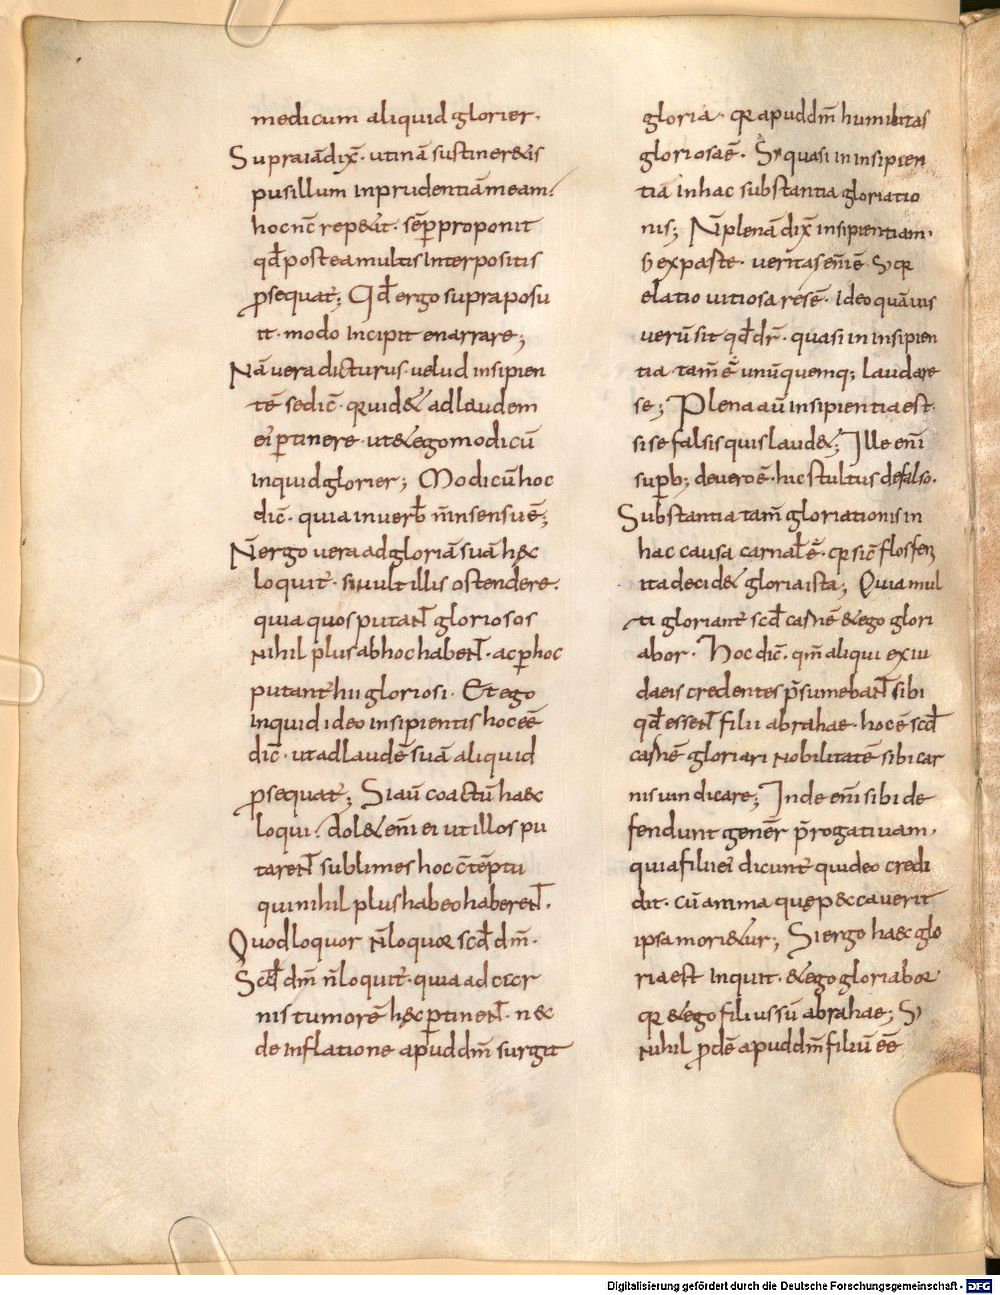 medicum aliquid glorier.
Supra iā dix̄. utinā sustineretis
pusillum inprudentiā meam.
hoc nc̄ repetit. sēp proponit
qđ postea multis interpositis
ꝓsequat̄; Qđ ergo supra posu
it. modo incipit enarrare;
Nā vera dicturus. velud insipien
tē se dic̄. quid & ad laudem
ei ꝑtinere. ut & ego modicū
inquid glorier; Modicū hoc
dic̄. quia in verƀ n̄ in sensu ē;
N̄ ergo vera ad gloriā suā hęc
loquit̄. s; vult illis ostendere.
quia quos putant gloriosos
nihil plus ab hoc habent. ac ꝑ hoc
putant̄ hii gloriosi. Et ego
inquid ideo insipientis hoc eē
dic̄. ut ad laudē suā aliquid
ꝓsequat̄; Si aū coactū haec
loqui. dol& eñi ei ut illos pu
tarent sublimes hoc c̄tēptu
qui nihil plus habeo haberent.
Quod loquor n̄ loquor scđ dm̄.
Scđ dm̄ n̄ loquit̄. quia ad cscr
nis tumorē hęc ꝑtinent. nec
de inflatione apud dm̄ surgit
gloria. qr apud dm̄ humilitas
gloriosa ē. S; quasi in insipien
tia in hac substantia gloriatio
nis; N̄ plenā dix̄ insipientiam.
s; ex paste. veritas eñi ē. S; qr
elatio vitiosa res ē. Ideo quāvis
verū sit qđ dr̄. quasi in insipien
tia tam̄ ē unūquemq; laudare
se; Plena aū insipientia est.
si se falsis quis laud&; Ille eñi
superƀ; de vero ē. hic stultus de falso.
Substantia tam̄ gloriationis in
hac causa carnał ē. qr sic̄ flos feni
ita decid& gloria ista; Quia mul
ti gloriant̄ scđ carnē & ego glori
abor. Hoc dic̄. qm̄ aliqui ex iu
daeis credentes p̄sumebant sibi
qđ essent filii abrahae. hoc ē scđ
carnē gloriari nobilitatē sibi car
nis vindicare; Inde eñi sibi de
fendunt gener̄ p̄rogativam.
quia filii ei dicunt̄ qui deo credi
dit. cū anima quę peccaverit
ipsa mori&ur; Si ergo haec glo
ria est inquit. & ego gloriabor
qr & ego filius sū abrahae; S;
nihil ꝓdē apud dm̄ filiū eē
Digitalisierung gefördert durch die Deutsche Forschungsgemeinschaft - DFG